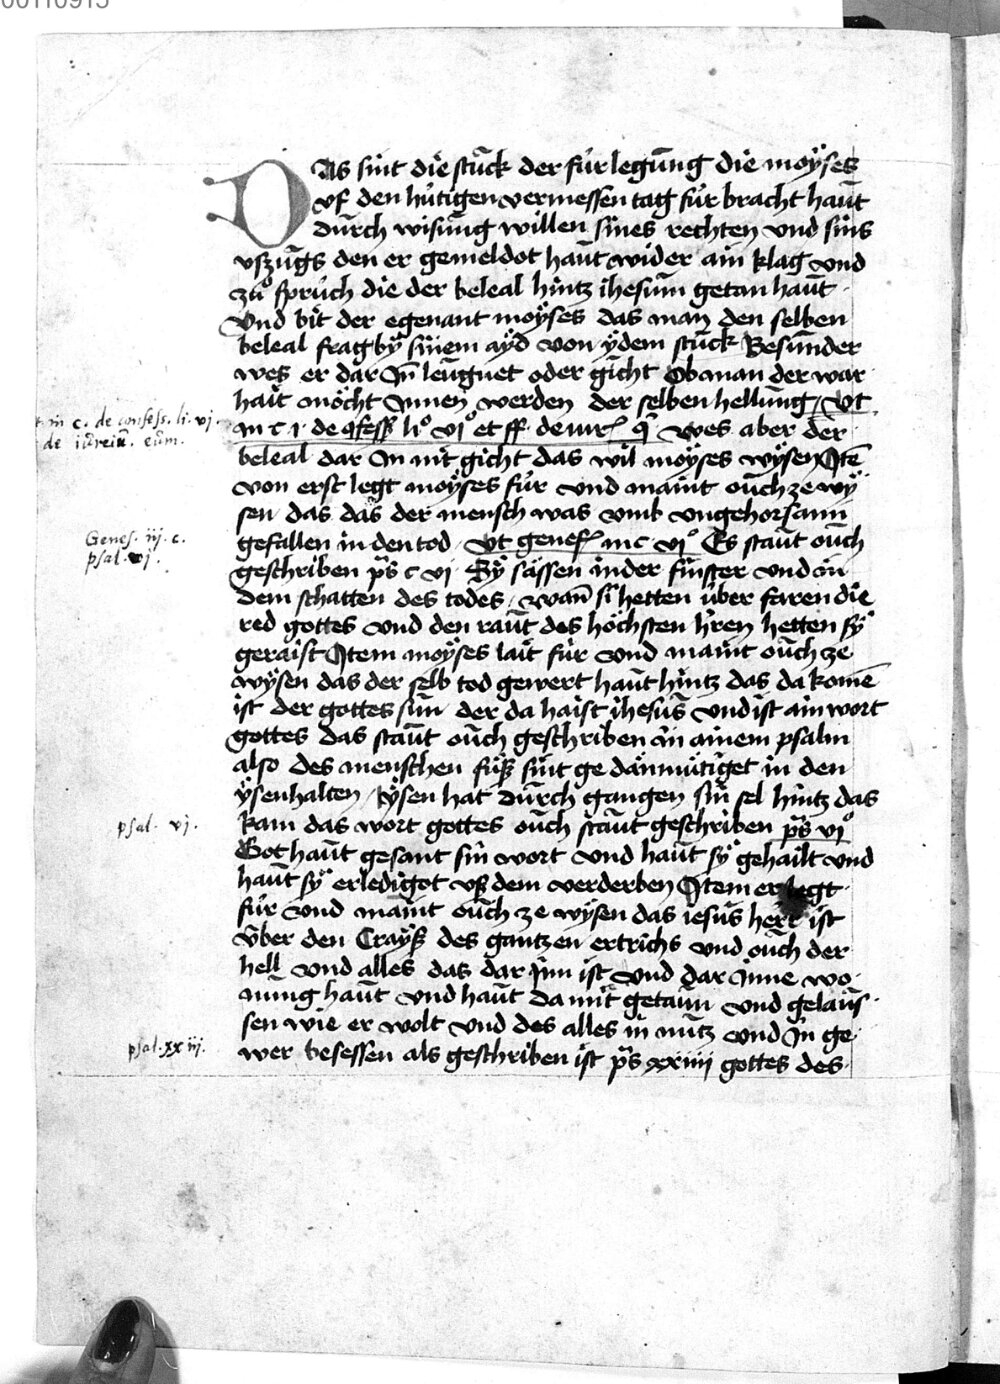 00110915
DAs sint die stuck der fúrlegung die moÿses
vf den hútigen vermessen tag fúr bracht haut
durch wisung willen sines rechten vnd sins
vszugs den er gemeldot haut wider ain klag vnd
zuͦ spruch die der beleal hintz ihesum getan haut
Vnd bit der egenant moÿses das man den selben
beleal frag bÿ sinem aÿd von ÿdem stuck Besunder
wes er dar In leugnet oder gicht Ob man der war
hait möcht Innen werden der selben hellung / vt
in c. i de 9fess. liº viº et ff. de iur. Wes aber der
beleal dar In nit gicht das wil moÿses wÿsen Itē
von erst legt moÿses fúr vnd maint ouch ze wÿ
sen das das der mensch was vmb vngehorsami
gefallen in den tod / vt genes. in c viº Es staut ouch
geschriben ps c vi Sÿ sassen in der finster vnd in
dem schatten des todes / wan̄ si hetten úber faren die
red gottes vnd den raut des höchsten h'ren hetten sÿ
geraist Item moÿses lait fúr vnd maint ouch ze
wÿsen das der selb tod gewert haut hintz das da komē
ist der gottes sun der da haist ihesus vnd ist ain wort
gottes das staut ouch geschriben in ainem psalm
also des menschen fúß sint ge dänmütiget in den
ÿsenhalten / ÿsen hat durch gangen sin sel hintz das
kam das wort gottes ouch staut geschriben ps viº
Got haut gesant sin wort vnd haut sÿ gehailt vnd
haut sÿ erledigot vß dem verderben Item er legt
fúr vnd maint ouch ze wÿsen das iesus herr ist
úber den Craÿß des gantzen ertrichs vnd ouch der
hell vnd alles das dar inn ist vnd dar Inne wo
nung haut vnd haut da mit getaun vnd gelaus
sen wie er wolt vnd des alles in nutz vnd In ge
wer besessen als geschriben ist ps xxiiii gottes des
in c. de confess. li. vj.
de iureiu. eum.
Genes. iij. c.
psal. vj.
psal. vj.
psal. xxiij.